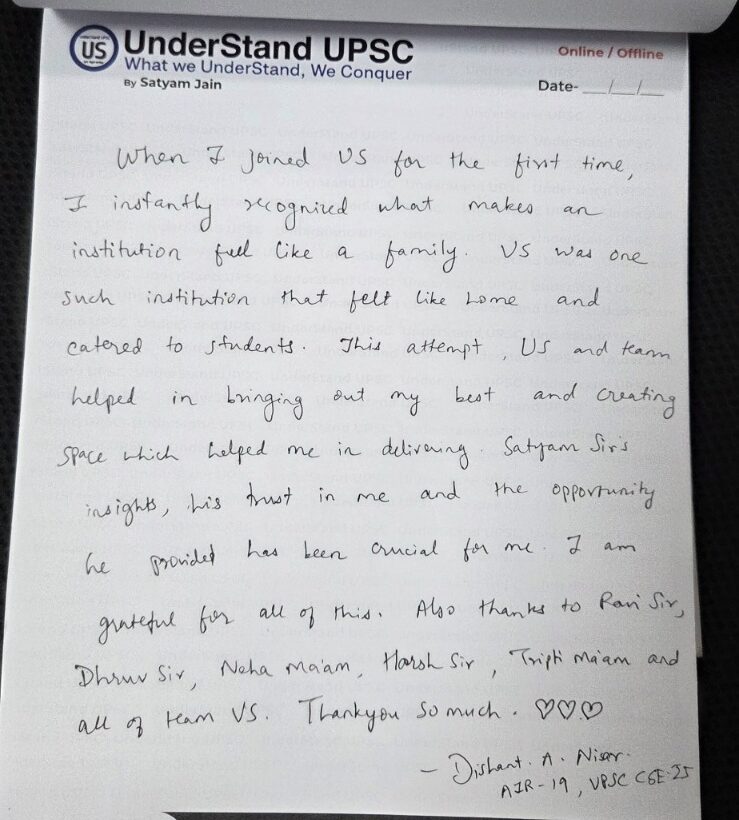 US UnderStand UPSC
What we UnderStand, We Conquer
By Satyam Jain
Online / Offline
Date- __/__/__
When I joined US for the first time,
I instantly recognized what makes an
institution feel like a family. US was one
such institution that felt like home and
catered to students. This attempt, US and team
helped in bringing out my best and creating
space which helped me in delivering. Satyam Sir's
insights, his trust in me and the opportunity
he provided has been crucial for me. I am
grateful for all of this. Also thanks to Ravi Sir,
Dhruv Sir, Neha Ma'am, Harsh Sir, Tripti Ma'am and
all of team US. Thankyou so much. ♡♡♡
- Dishant. A. Nisar.
AIR-19, UPSC CSE-25